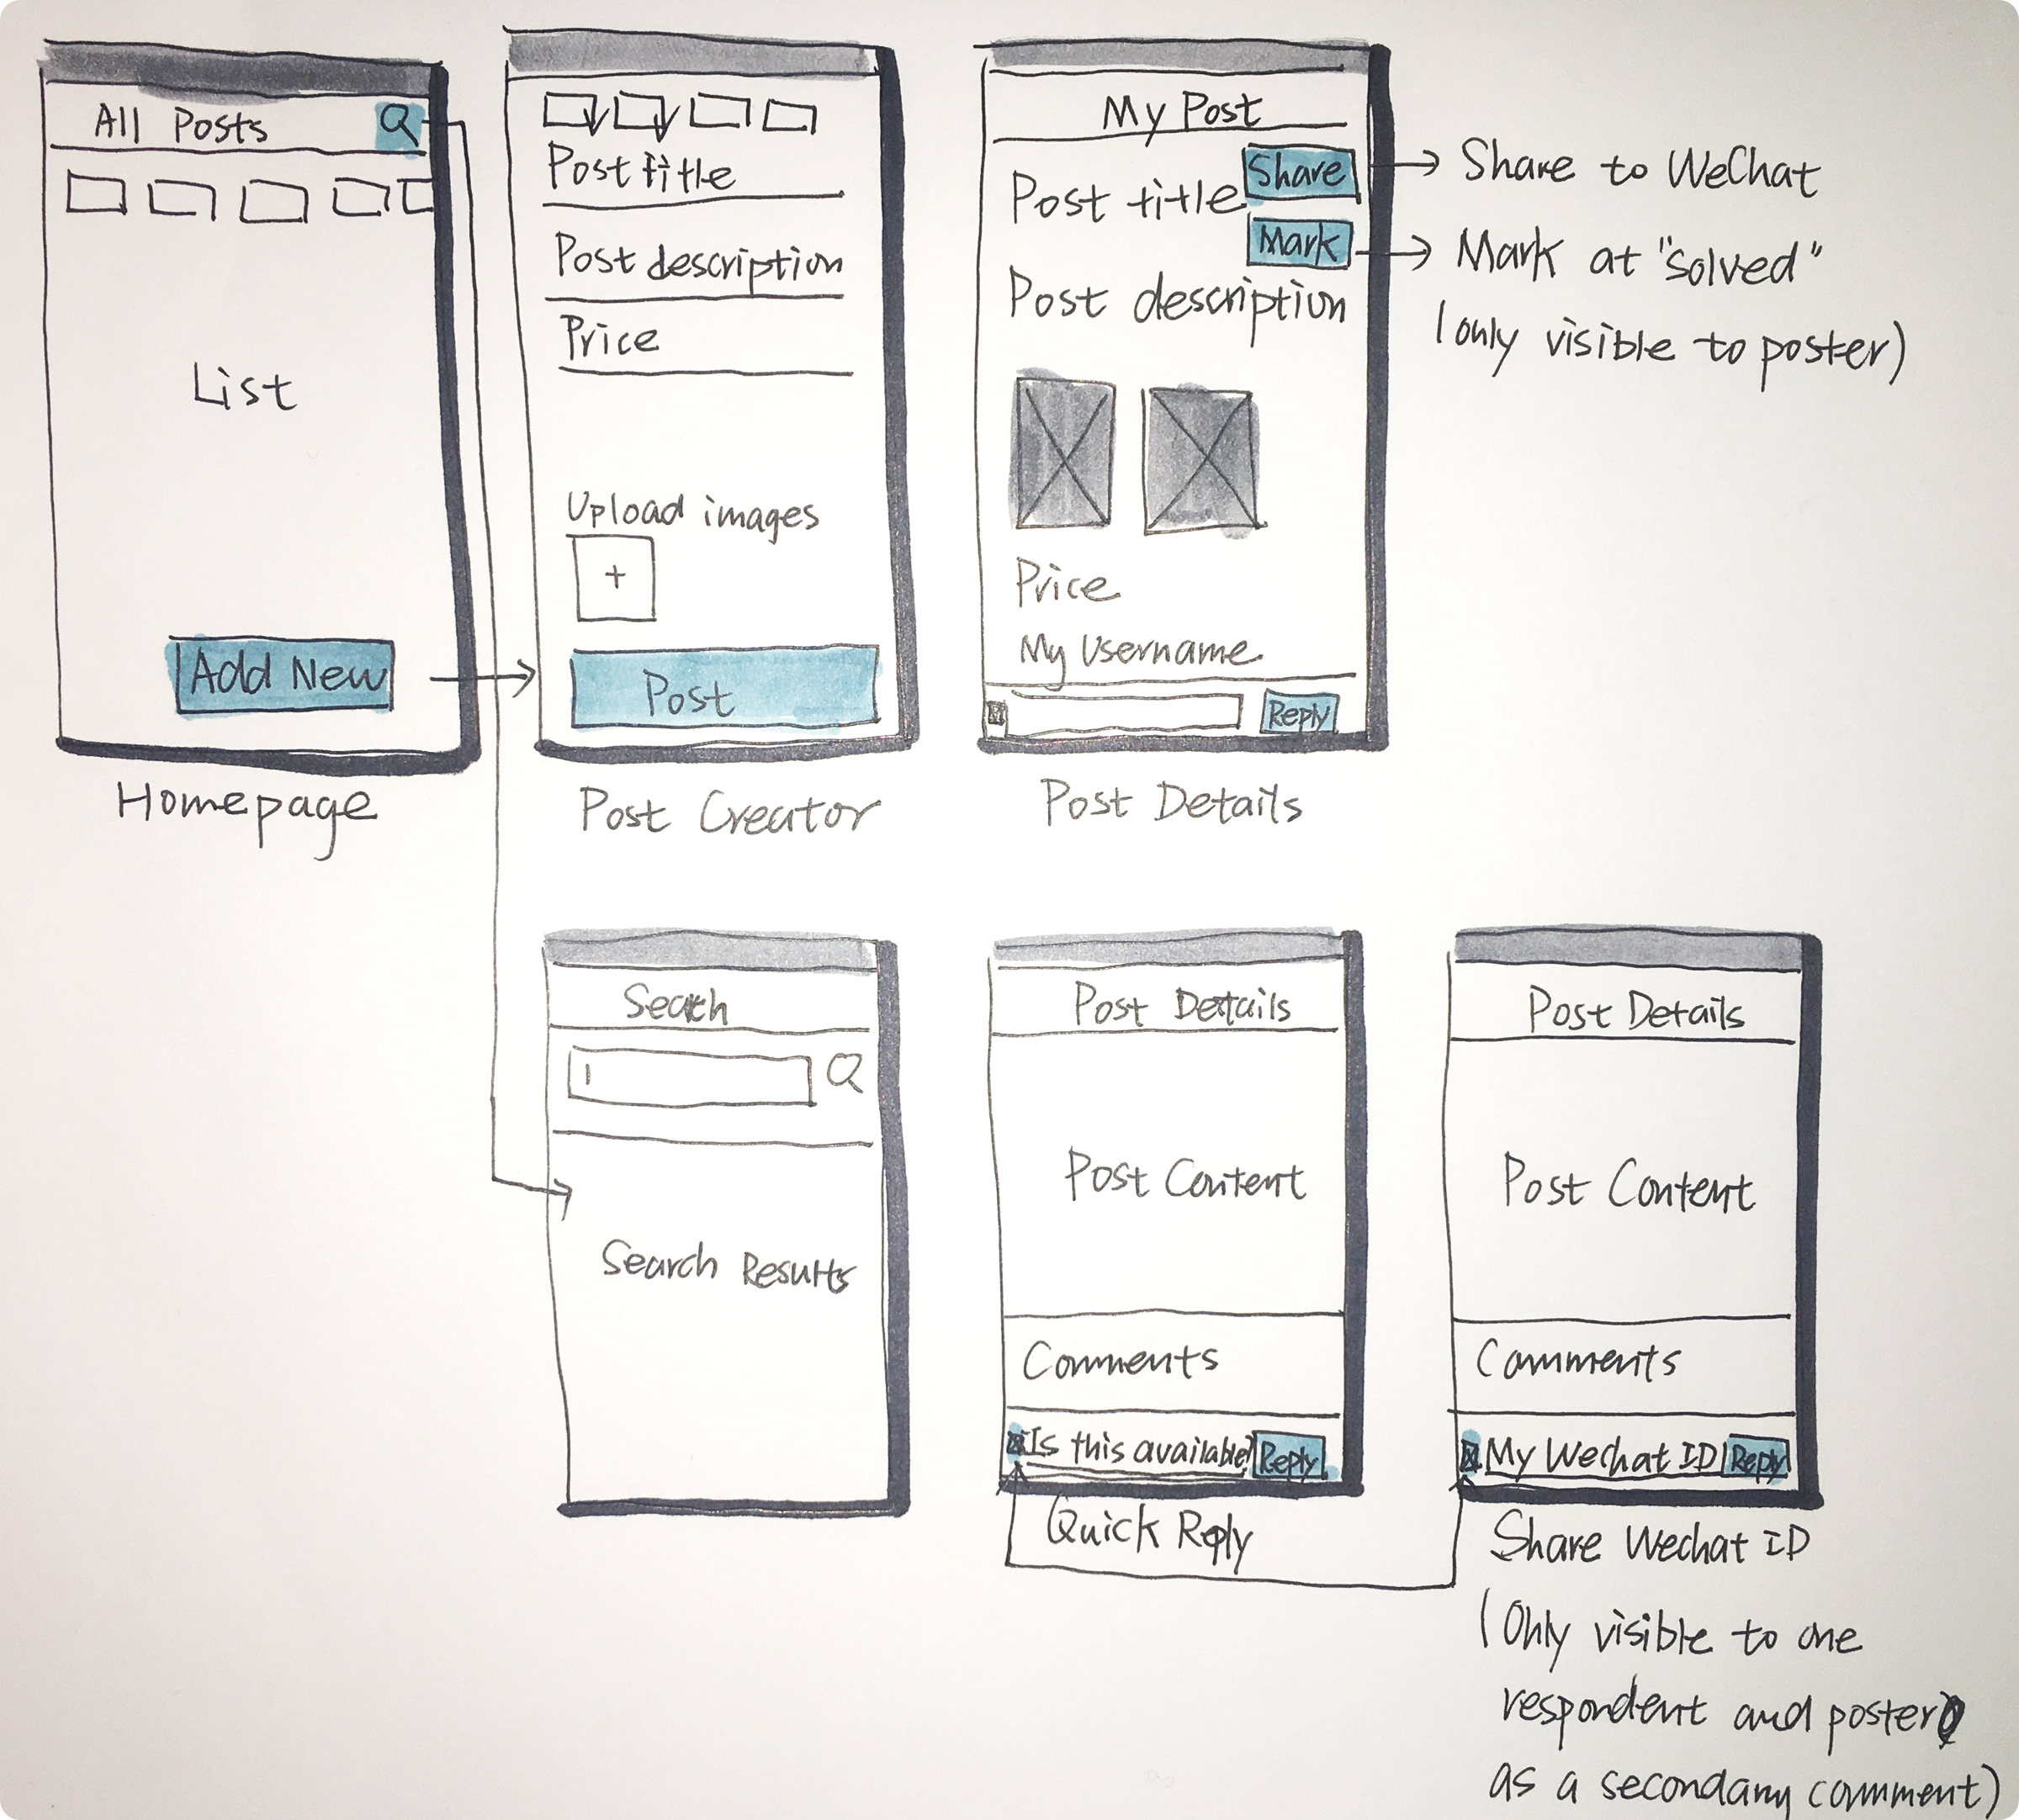 All Posts
List
Add New
Homepage
Post title
Post description
Price
Upload images
+
Post
Post Creator
My Post
Share
Post title
Mark
Post description
Price
My Username
Reply
Post Details
Share to WeChat
Mark at "solved"
(only visible to poster)
Search
Search Results
Post Details
Post Content
Comments
Is this available?
Reply
Quick Reply
Post Details
Post Content
Comments
My Wechat ID
Reply
Share Wechat ID
(Only visible to one
respondent and poster
as a secondary comment)